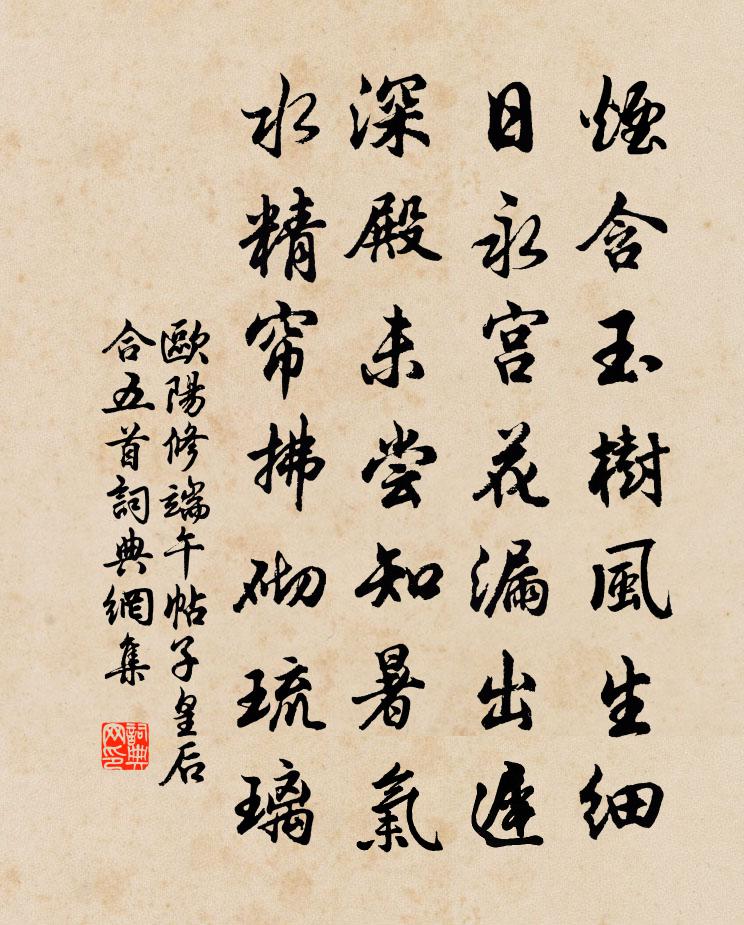 煙含玉樹風生細
日永宮花漏出遲
深殿未尝知暑氣
水精帘拂砌琉璃
歐陽修端午帖子皇后
合五首詞典網集
詞典网印